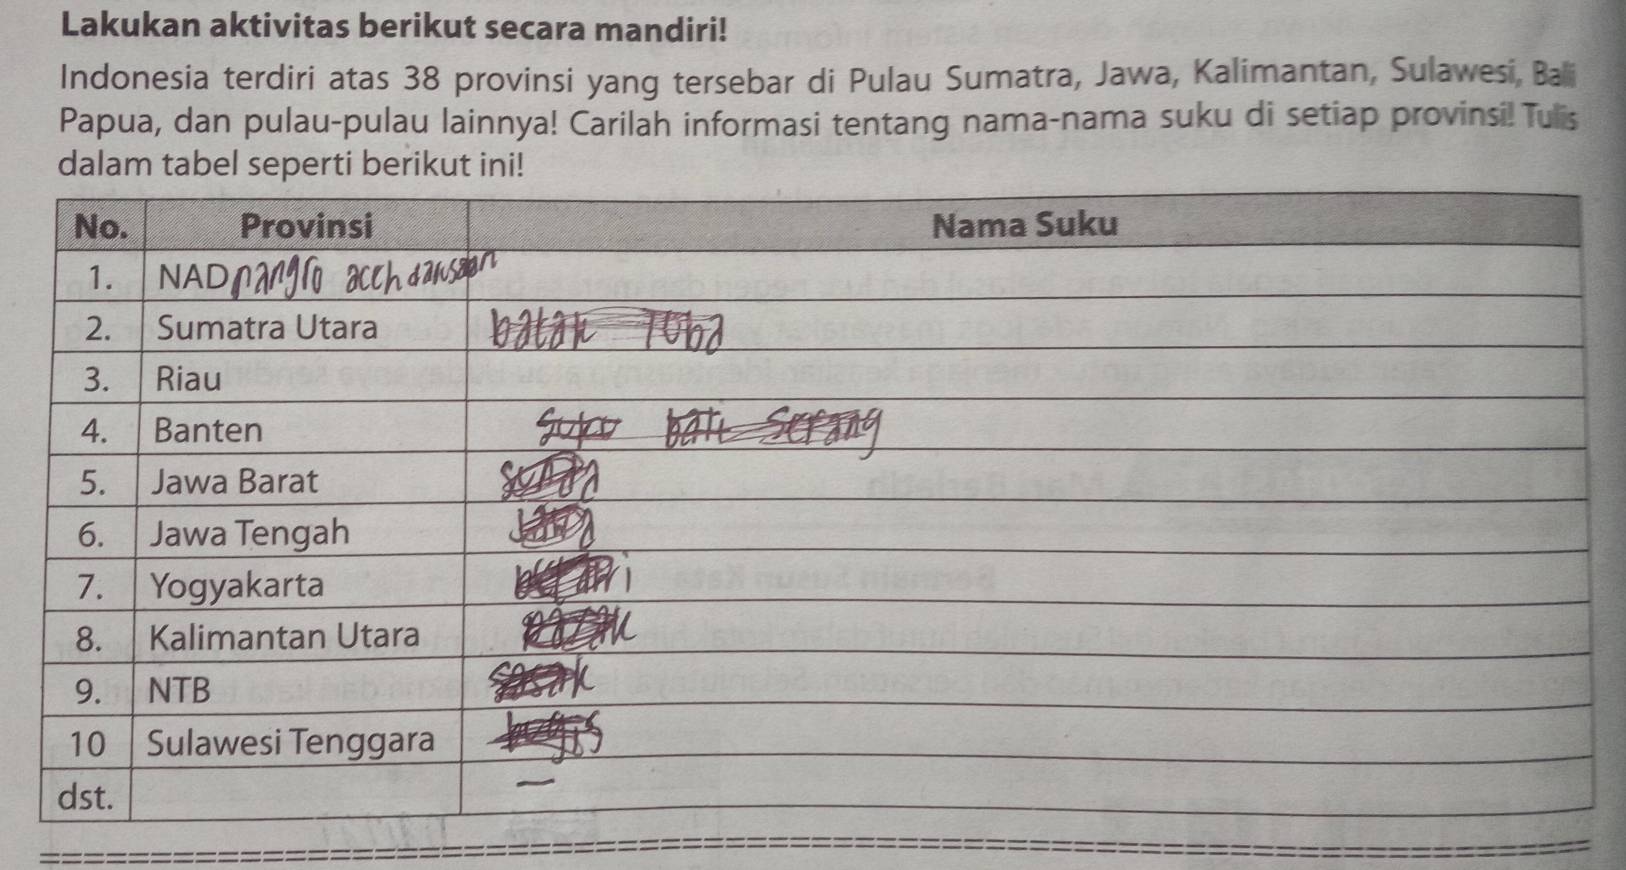 Lakukan aktivitas berikut secara mandiri!
Indonesia terdiri atas 38 provinsi yang tersebar di Pulau Sumatra, Jawa, Kalimantan, Sulawesi, Bali
Papua, dan pulau-pulau lainnya! Carilah informasi tentang nama-nama suku di setiap provinsi! Tulis
dalam tabel seperti berikut ini!
No. Provinsi Nama Suku
1. NAD nangro acch
2. Sumatra Utara batak Toba
3. Riau
4. Banten Suku Serang
5. Jawa Barat
6. Jawa Tengah
7. Yogyakarta
8. Kalimantan Utara
9. NTB sasak
10 Sulawesi Tenggara
dst. —